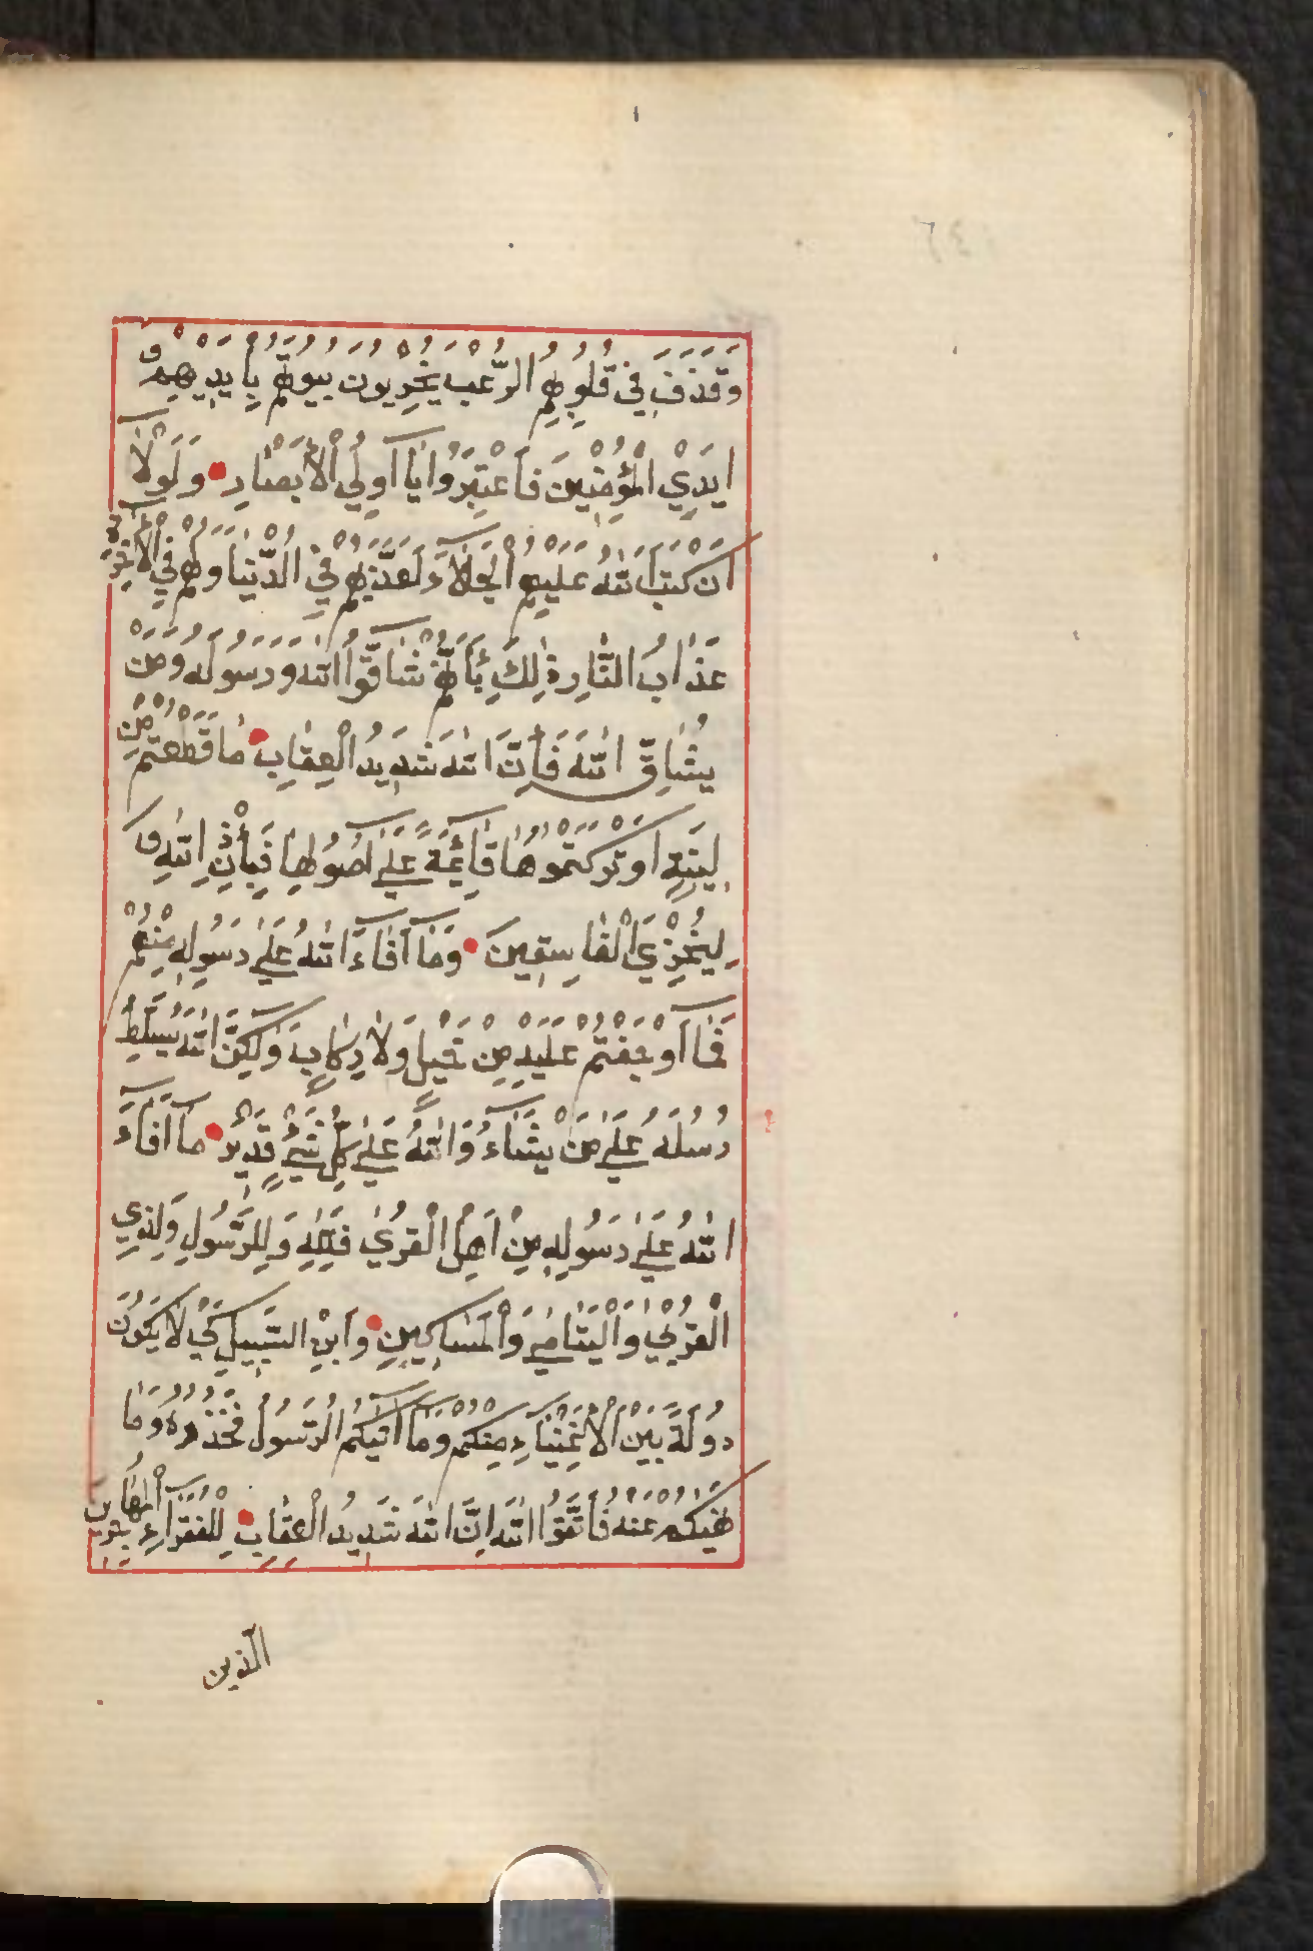 وَقَذَفَ فِي قُلُوبِهِمُ الرُّعْبَ يُخْرِبُونَ بُيُوتَهُمْ بِأَيْدِيهِمْ وَ
اَيْدِيْ الْمُؤْمِنِينَ فَاعْتَبِرُوا يَا اُولِي الْأَبْصَارِ وَلَوْلَا
اَنْ كَتَبَ اللهُ عَلَيْهِمُ الْجَلَاءَ لَعَذَّبَهُمْ فِي الدُّنْيَا وَلَهُمْ فِي الْآخِرَةِ
عَذَابُ النَّارِ ذٰلِكَ بِأَنَّهُمْ شَاقُّوا اللهَ وَرَسُولَهُ وَمَنْ
يُشَاقِّ اللهَ فَاِنَّ اللهَ شَدِيدُ الْعِقَابِ مَا قَطَعْتُمْ مِنْ
لِينَةٍ اَوْ تَرَكْتُمُوهَا قَائِمَةً عَلَى اُصُولِهَا فَبِأِذْنِ اللهِ وَ
لِيُخْزِيَ الْفَاسِقِينَ وَمَا اَفَاءَ اللهُ عَلَى رَسُولِهِ مِنْهُمْ
فَمَا اَوْجَفْتُمْ عَلَيْهِ مِنْ خَيْلٍ وَلَا رِكَابٍ وَلَكِنَّ اللهَ يُسَلِّطُ
رُسُلَهُ عَلَى مَنْ يَشَاءُ وَاللهُ عَلَى كُلِّ شَيْءٍ قَدِيرٌ مَا اَفَاءَ
اللهُ عَلَى رَسُولِهِ مِنْ اَهْلِ الْقُرَى فَلِلّٰهِ وَلِلرَّسُولِ وَلِذِي
الْقُرْبَى وَالْيَتَامَى وَالْمَسَاكِينِ وَابْنِ السَّبِيلِ كَيْ لَا يَكُونَ
دُولَةً بَيْنَ الْأَغْنِيَاءِ مِنْكُمْ وَمَا اٰتٰيكُمُ الرَّسُولُ فَخُذُوهُ وَمَا
نَهٰيكُمْ عَنْهُ فَاتَّقُوا اللهَ اِنَّ اللهَ شَدِيدُ الْعِقَابِ لِلْفُقَرَاءِ الْمُهَاجِرِينَ
الَّذِينَ